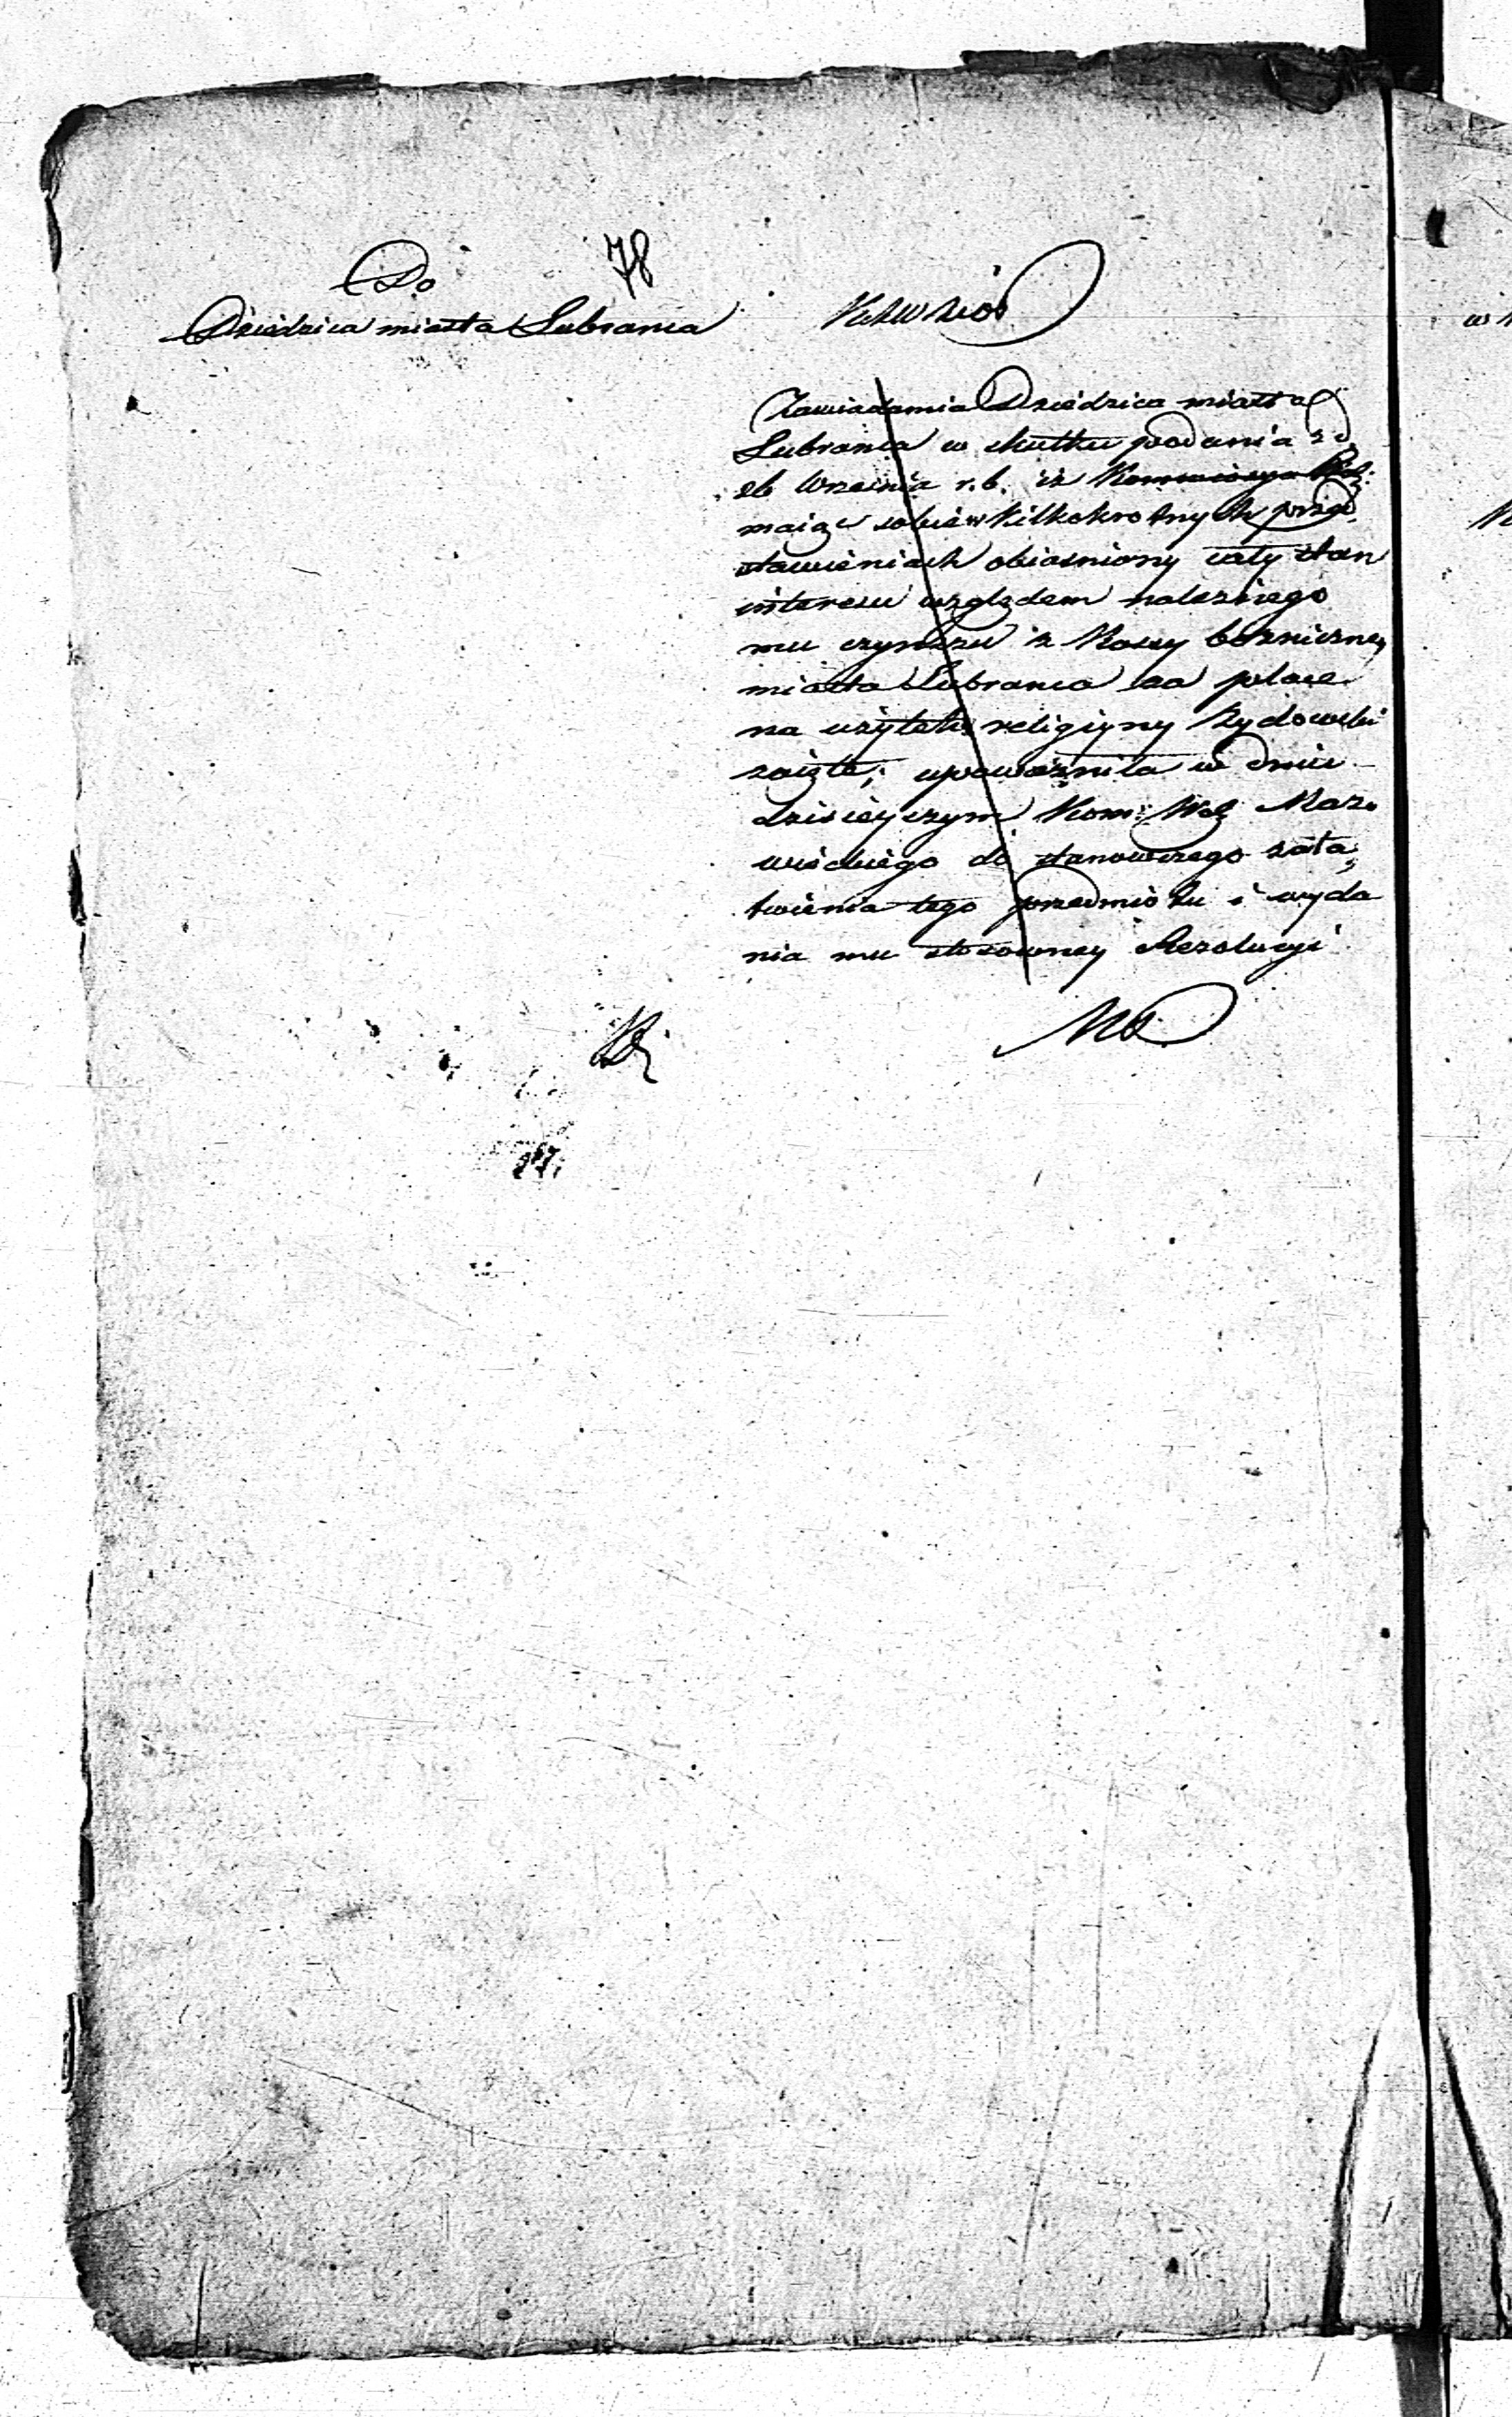 78
Do
Dziedzica miasta Lubrania
Zawiadamia Dziedzica miasta
Lubrania w skutku podania z d.
26 Września r. b. iż Kommissya
maiąc sobie w kilkokrotnych przed
stawieniach obiaśniony cały stan
interesu względem należnego
mu czynszu z Kassy bożniczney
miasta Lubrania za place
na użytek religijny Żydowski
zaięte; upoważniła w dniu
dzisieyszym Kom: Woj: Mazo
wieckiego do stanowczego zała
twienia tego przedmiotu i wyda
nia mu stosowney Rezolucyi